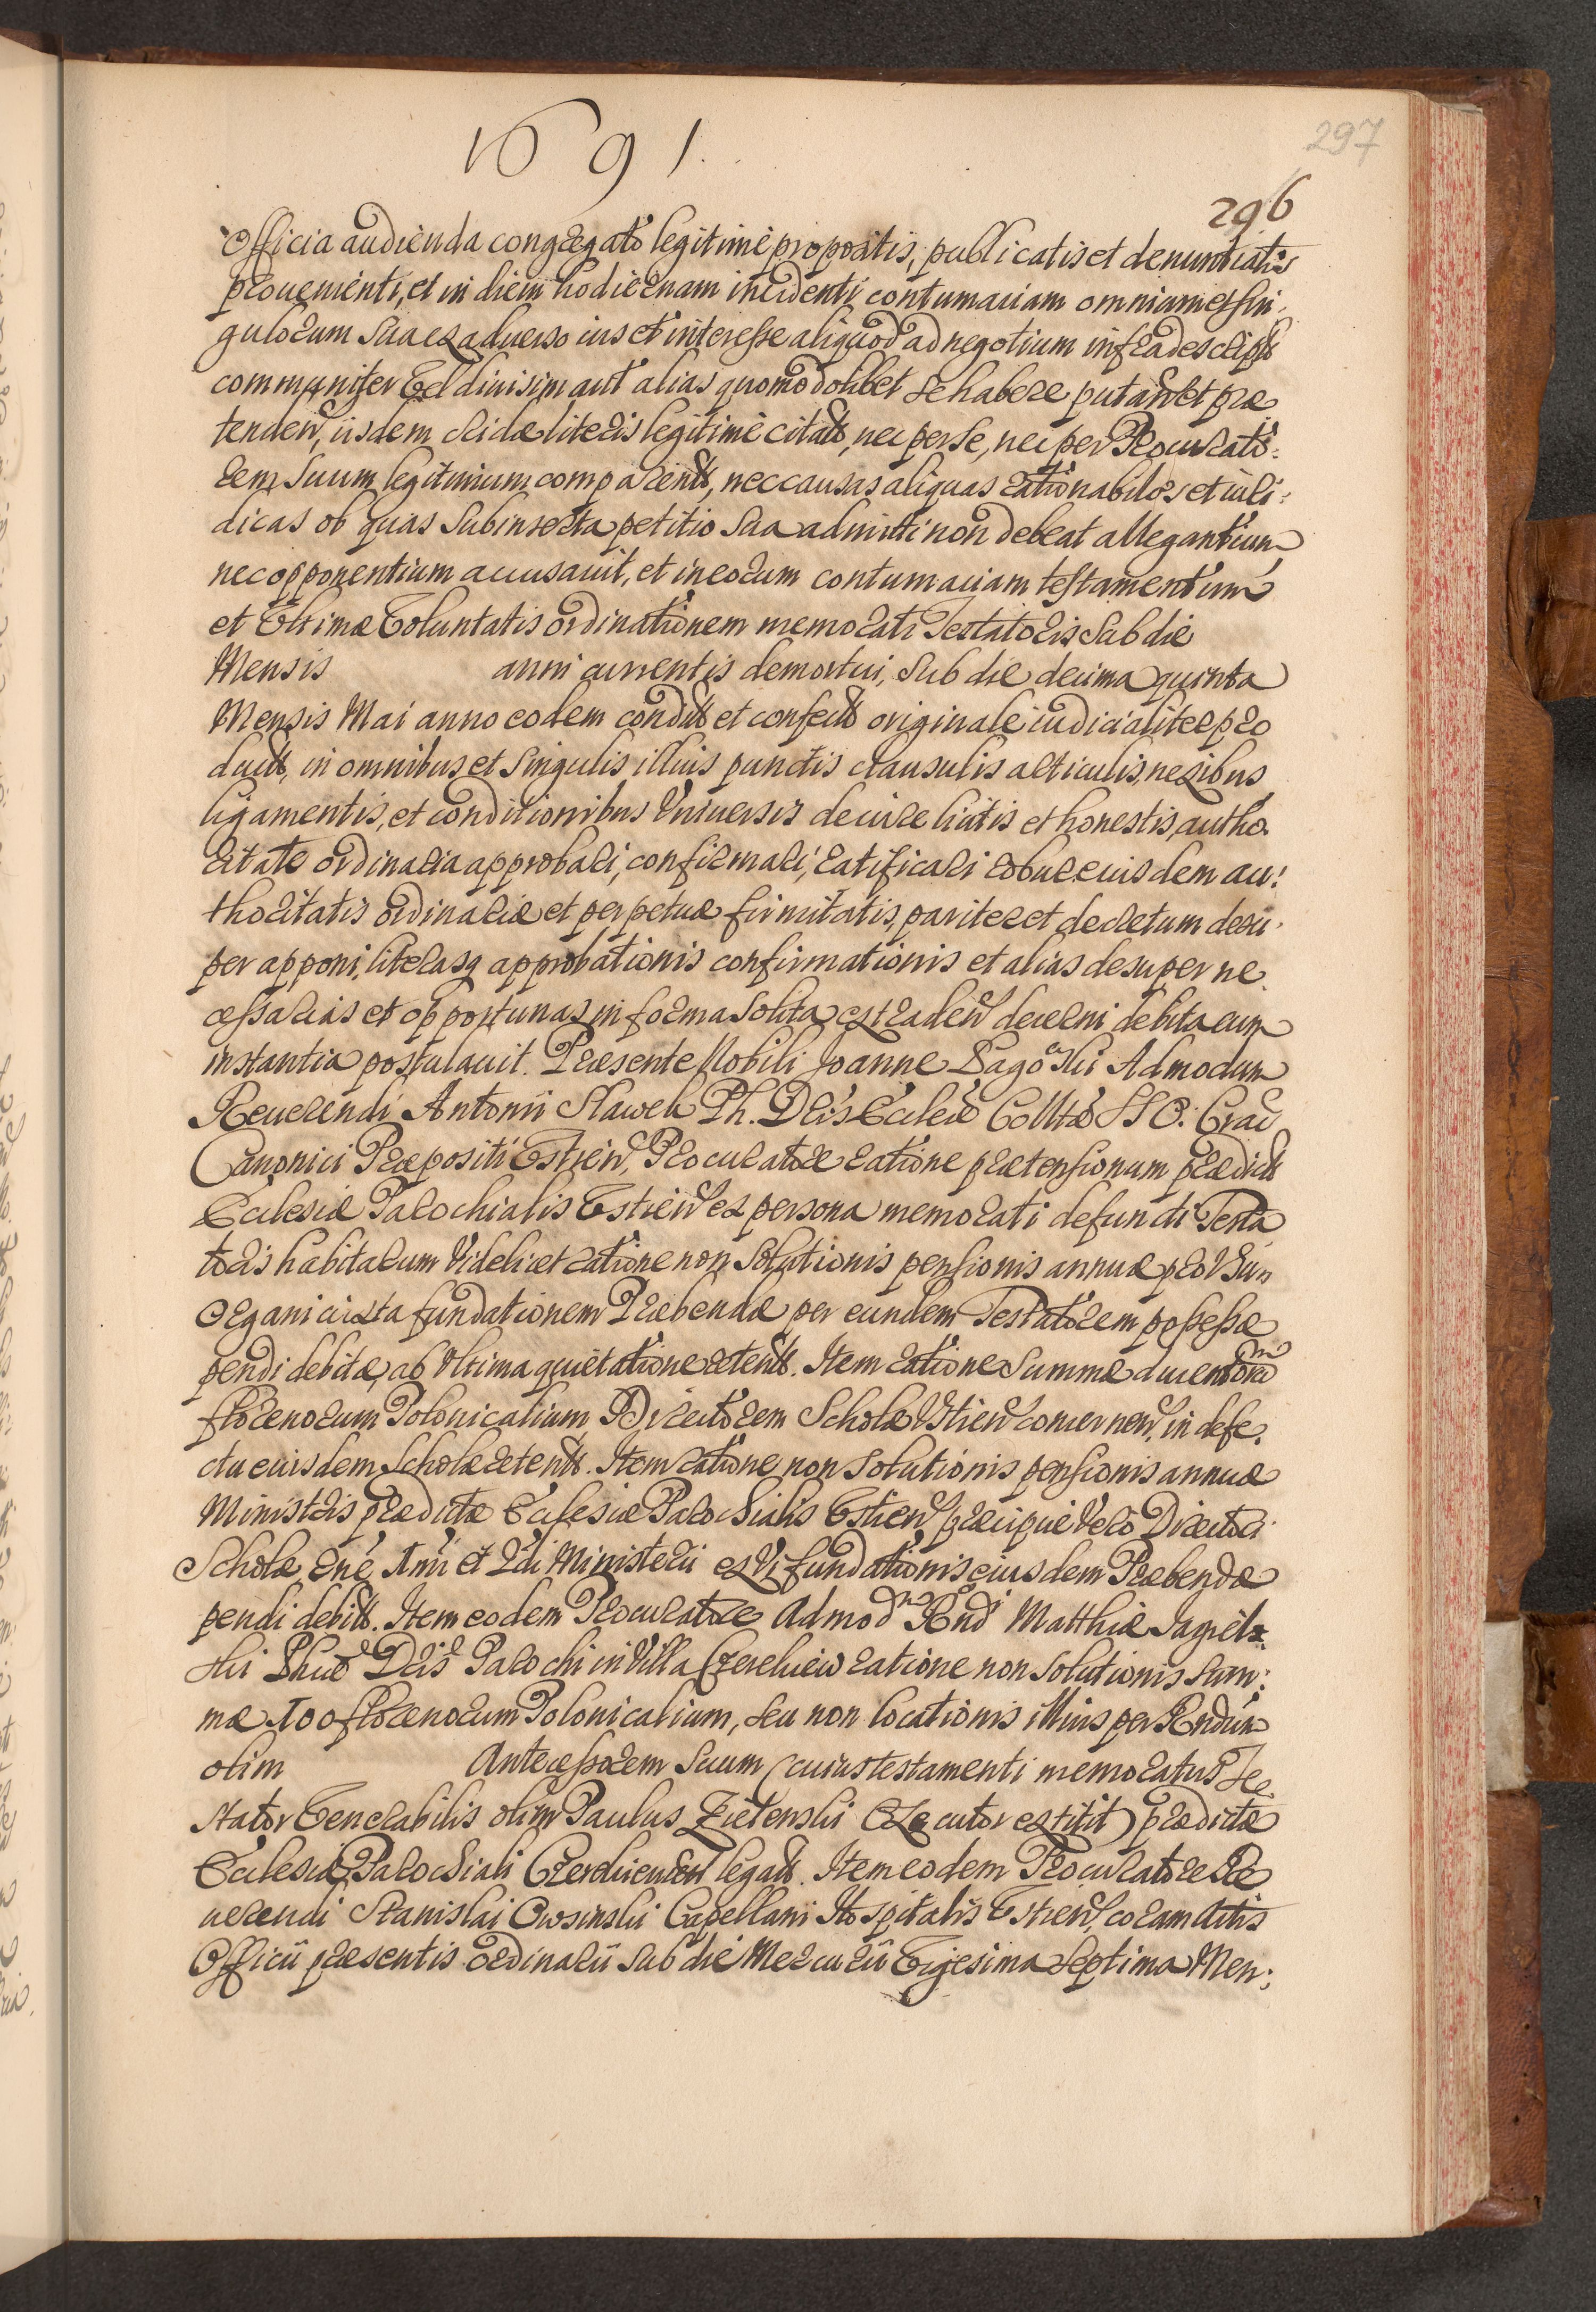 1691.
297
296
Officia audienda congregato legitime propositis, publicatis et denuntiatis
provenienti, et in diem hodiernam incidenti contumaciam omnium et sin,
gulorum sua ex adverso ius et interesse aliquod ad negotium infradescript
communiter Vel divisim aut alias quomodolibet se habere putan et præ
tenden, iisdem literis legitime citat, nec per se, nec per Procurato:
rem suum legitimum comparent, nec causas aliquas rationabiles et iuri:
dicas ob quas subinserta petitio sua admitti non debeat allegantium
nec opponentium accusavit, et in eorum contumaciam testamentum
et Vltimæ Voluntatis ordinationem memorati Testatoris sub die
Mensis anni currentis demortui, sub die decima quinta
Mensis Mai anno eodem condit et confect originale iudicialiter pro
duct, in omnibus et singulis illius punctis clausulis articulis, nexibus,
ligamentis, et conditionibus Vniversis de iure licitis et honestis, autho.
ritate ordinaria approbari, confirmari, ratificari robur eiusdem au:
thoritatis ordinariæ et perpetuæ firmitatis, pariter et decretum desu.
per apponi, literasq approbationis confirmationis et alias desuper ne.
cessarias et opportunas in forma solita extraden decerni debita cum
instantia postulavit. Præsente Nobili Joanne Admodum
Reverendi Antonii Slawek Ph. Dris Eccleæ Colltæ SS O: Crac
Canonici Præpositi Vstien, Procuratore ratione prætensionum prædict
Ecclesiæ Parochialis Vstien ex persona memorati defuncti Testa
toris habitarum Videlicet ratione non solutionis pensionis annuæ pro Vsu
Organi iuxta fundationem Præbendæ per eundem Testatorem possessæ
pendi debitæ, ab Vltima quietatione retent. Item ratione summæ ducentorum
florenorum Polonicalium, Directorem Scholæ Vstien concernen, in defe.
ctu eiusdem Scholæ retent. Item ratione non solutionis pensionis annuæ
Ministris prædictæ Ecclesiæ Parochialis Vstien præcipue Vero Directori
Scholæ rne Anni et Ministerii ex Vi fundationis eiusdem Præbendæ
pendi debit. Item eodem Procuratore Admod Rndi Matthiæ Jagiel
ski Phiæ Dris Parochi in Villa ratione non solutionis sum:
mæ 100 florenorum Polonicalium, seu non locationis illius per Rndum
olim Antecessorem suum (cuius testamenti memoratus Te
stator Venerabilis olim Paulus Zielenski Executor extitit) prædictæ
Ecclesiæ Parochiali legat. Item eodem Procuratore Re
verendi Stanislai Owsinski Capellani Hospitalis Vstien, coram Actis
Officii præsentis ordinarii sub die Mercurii Vigesima septima Men: